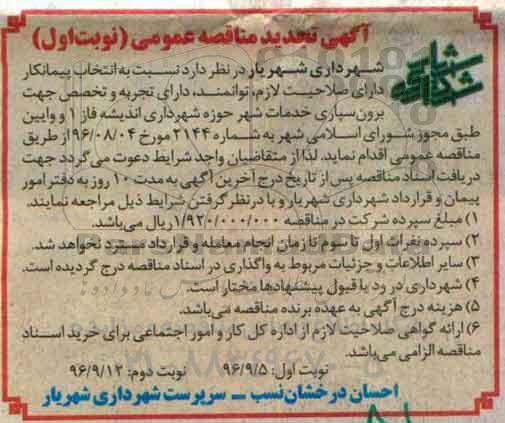 آگهی تجدید مناقصه عمومی (نوبت اول)
شهرداری شهریار در نظر دارد نسبت به انتخاب پیمانکار
دارای صلاحیت لازم، توانمند، دارای تجربه و تخصص جهت
برون‌سپاری خدمات شهر حوزه شهرداری اندیشه فاز ۱ و وایین
طبق مجوز شورای اسلامی شهر به شماره ۲۱۴۴ مورخ ۹۶/۰۸/۰۴ از طریق
مناقصه عمومی اقدام نماید. لذا از متقاضیان واجد شرایط دعوت می‌گردد جهت
دریافت اسناد مناقصه پس از تاریخ درج آخرین آگهی به مدت ۱۰ روز به دفتر امور
پیمان و قرارداد شهرداری شهریار و با در نظر گرفتن شرایط ذیل مراجعه نمایند.
۱) مبلغ سپرده شرکت در مناقصه ۱/۹۲۰/۰۰۰/۰۰۰ ریال می‌باشد.
۲) سپرده نفرات اول تا سوم تا زمان انجام معامله و قرارداد مسترد نخواهد شد.
۳) سایر اطلاعات و جزئیات مربوط به واگذاری در اسناد مناقصه درج گردیده است.
۴) شهرداری در رد یا قبول پیشنهادها مختار است.
۵) هزینه درج آگهی به عهده برنده مناقصه می‌باشد.
۶) ارائه گواهی صلاحیت لازم از اداره کل کار و امور اجتماعی برای خرید اسناد
مناقصه الزامی می‌باشد.
نوبت اول: ۹۶/۹/۵ نوبت دوم: ۹۶/۹/۱۲
احسان درخشان‌نسب – سرپرست شهرداری شهریار